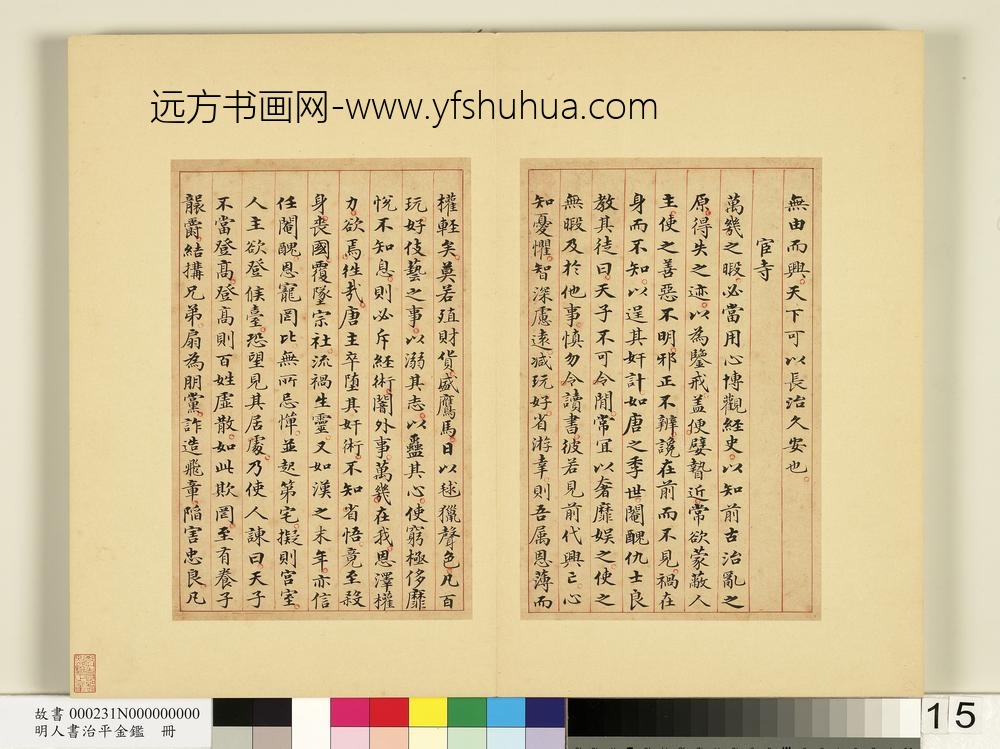 远方书画网-www.yfshuhua.com
無由而興天下可以長治久安也
宦寺
萬幾之暇必當用心博觀經史以知前古治亂之
原得失之迹以為鑒戒蓋便嬖暬近常欲蒙蔽人
主使之善惡不明邪正不辨讒在前而不見禍在
身而不知以逞其奸計如唐之季世閹醜仇士良
教其徒曰天子不可令閒常宜以奢靡娛之使之
無暇及於他事慎勿令讀書彼若見前代興亡心
知憂懼智深慮遠減玩好省游幸則吾属恩薄而
權軽矣莫若殖財貨盛鷹馬日以毬獵聲色凡百
玩好伎藝之事以溺其志以蠱其心使窮極侈靡
悅不知息則必斥経術闇外事萬幾在我恩澤權
力欲焉徃哉唐主卒堕其奸術不知省悟竟至殺
身喪國覆墜宗社流禍生靈又如漢之末年亦信
任閹醜恩寵罔比無所忌憚並起第宅擬則宮室
人主欲登候臺恐望見其居處乃使人諫曰天子
不當登高登高則百姓虛散如此欺罔至有養子
襲爵結搆兄弟扇為朋黨詐造飛章陷害忠良凡
故書 000231N000000000
明人書治平金鑑 冊
15